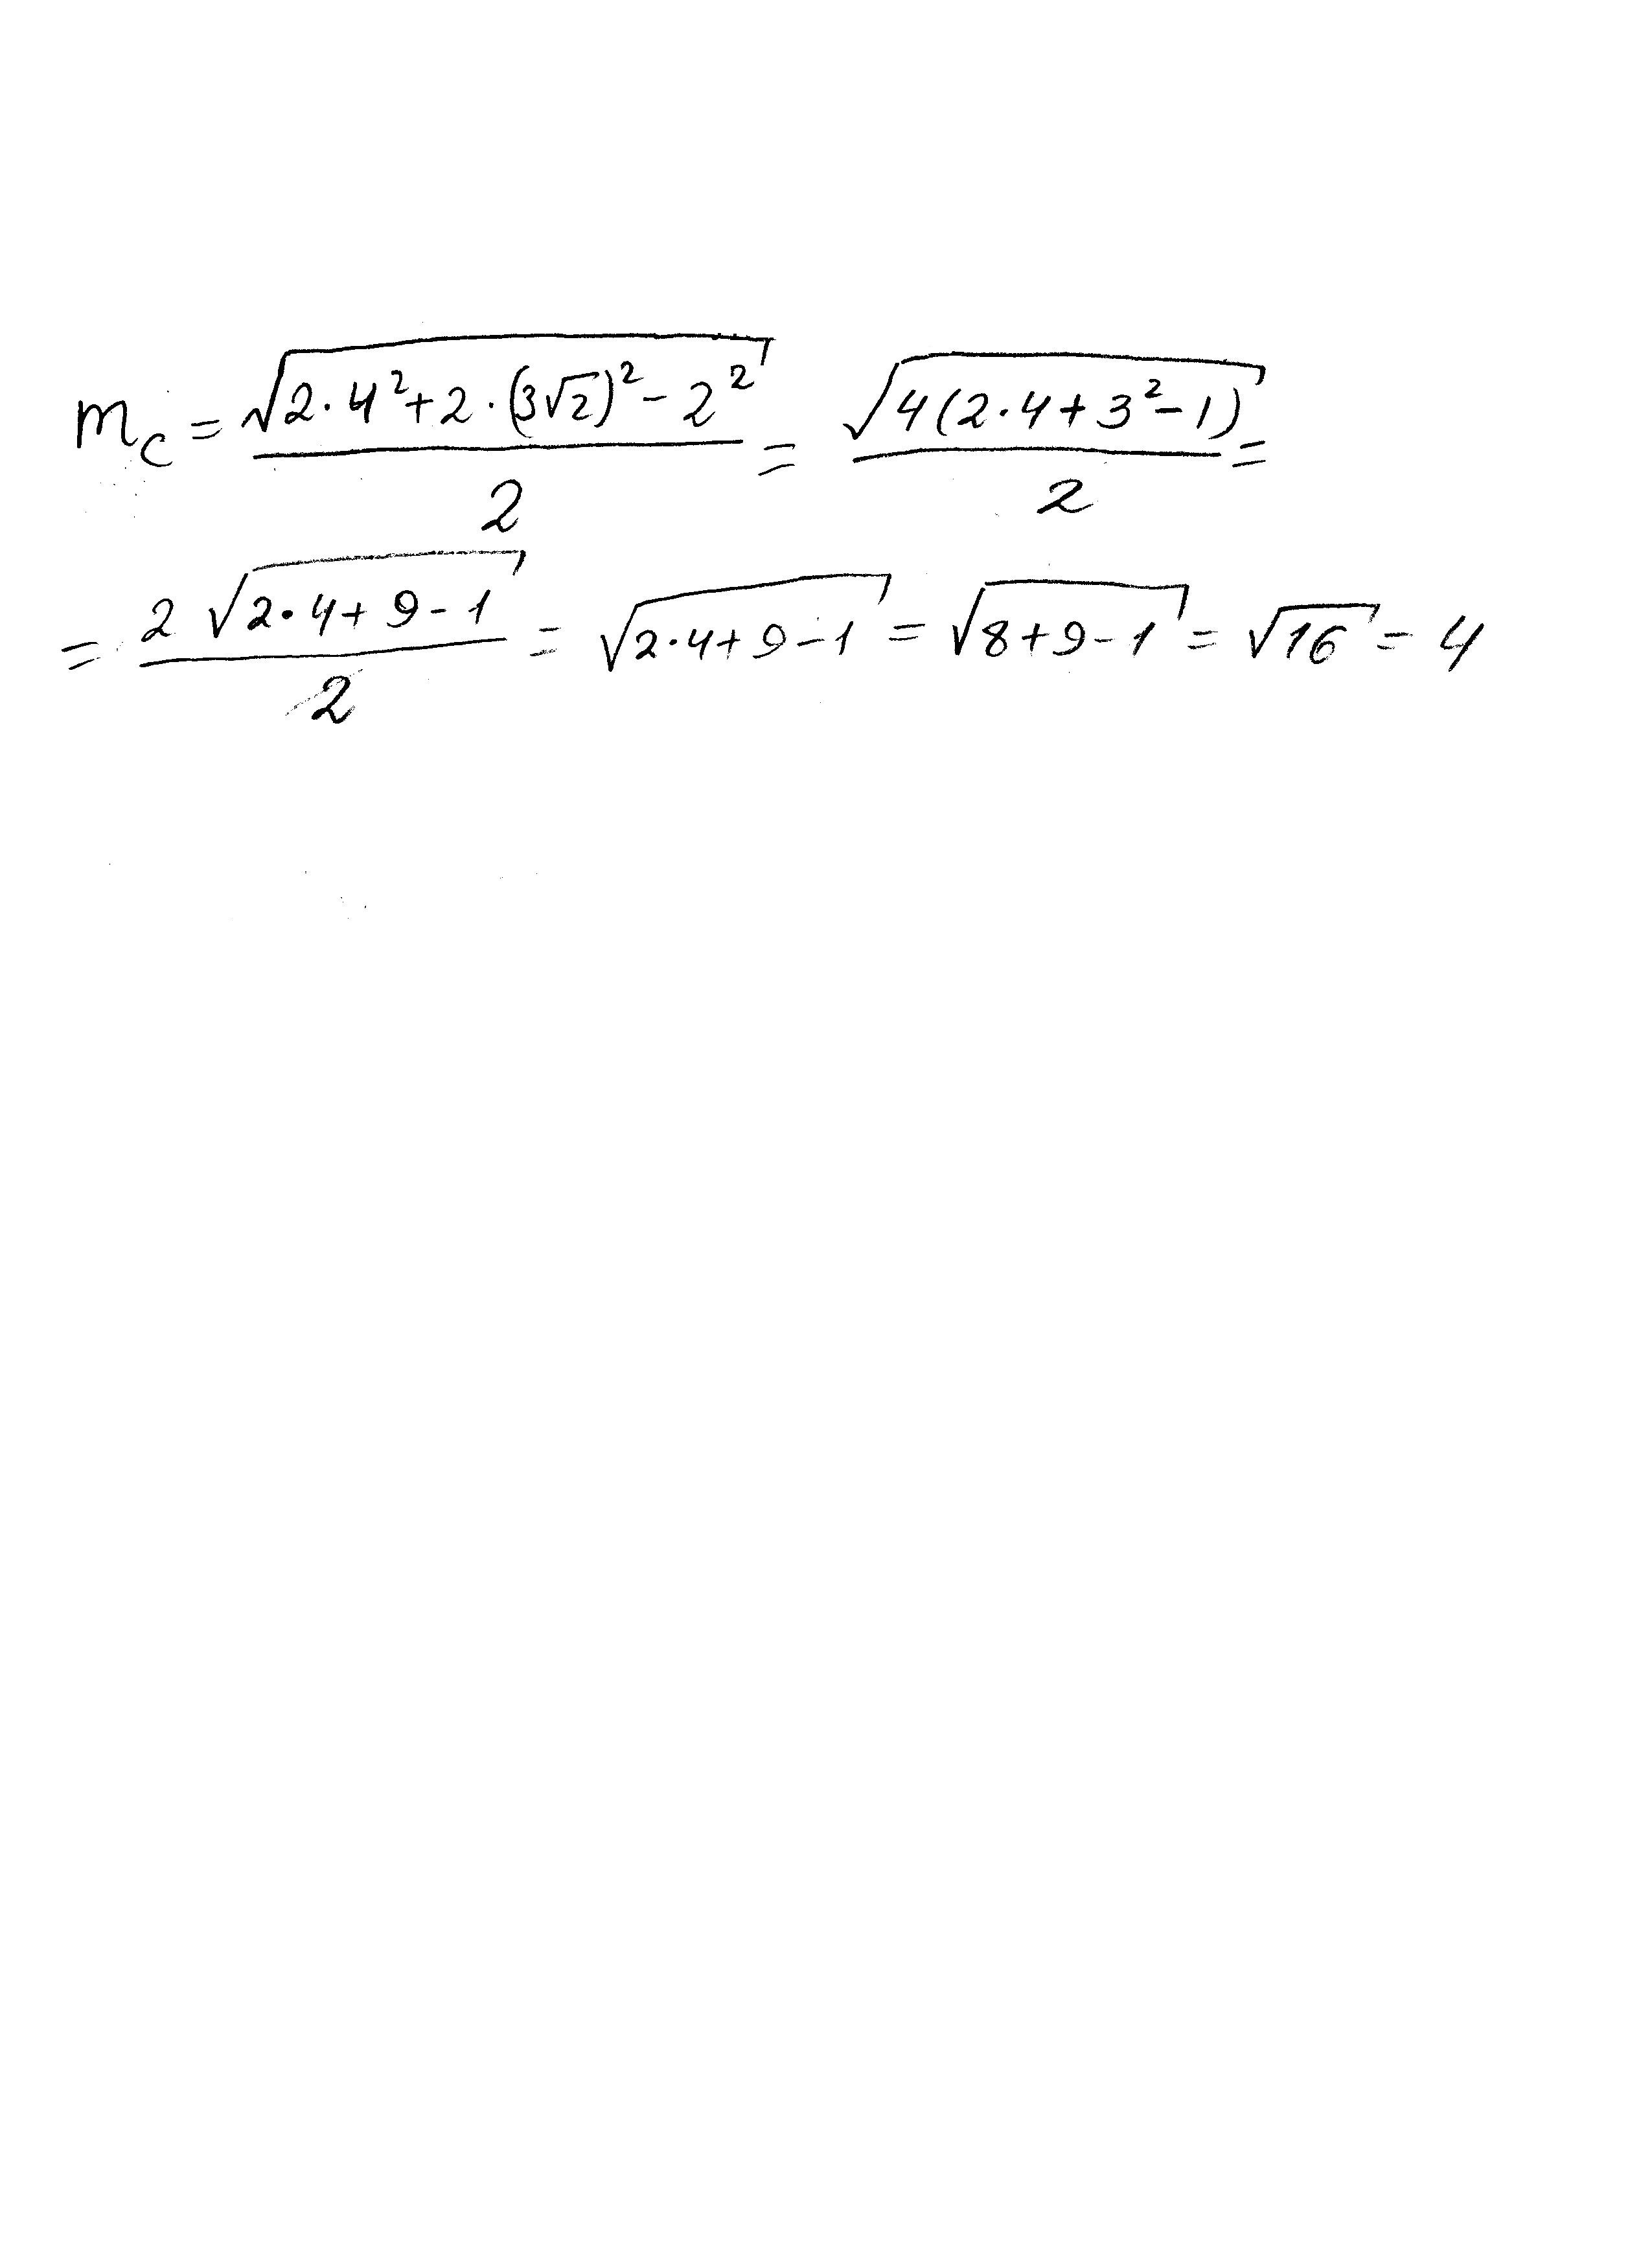 m_c = \frac{\sqrt{2 \cdot 4^2 + 2 \cdot (3\sqrt{2})^2 - 2^2}}{2} = \frac{\sqrt{4(2 \cdot 4 + 3^2 - 1)}}{2} =
= \frac{2\sqrt{2 \cdot 4 + 9 - 1}}{2} = \sqrt{2 \cdot 4 + 9 - 1} = \sqrt{8 + 9 - 1} = \sqrt{16} = 4